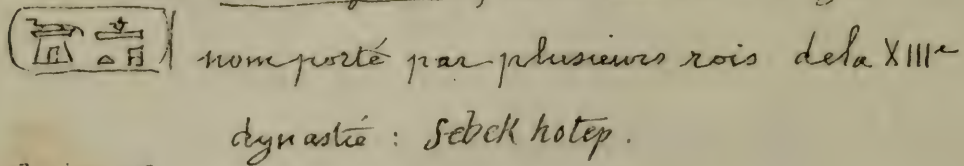 nom porté par plusieurs rois de la XIIIe
dynastie : Sebek hotep.